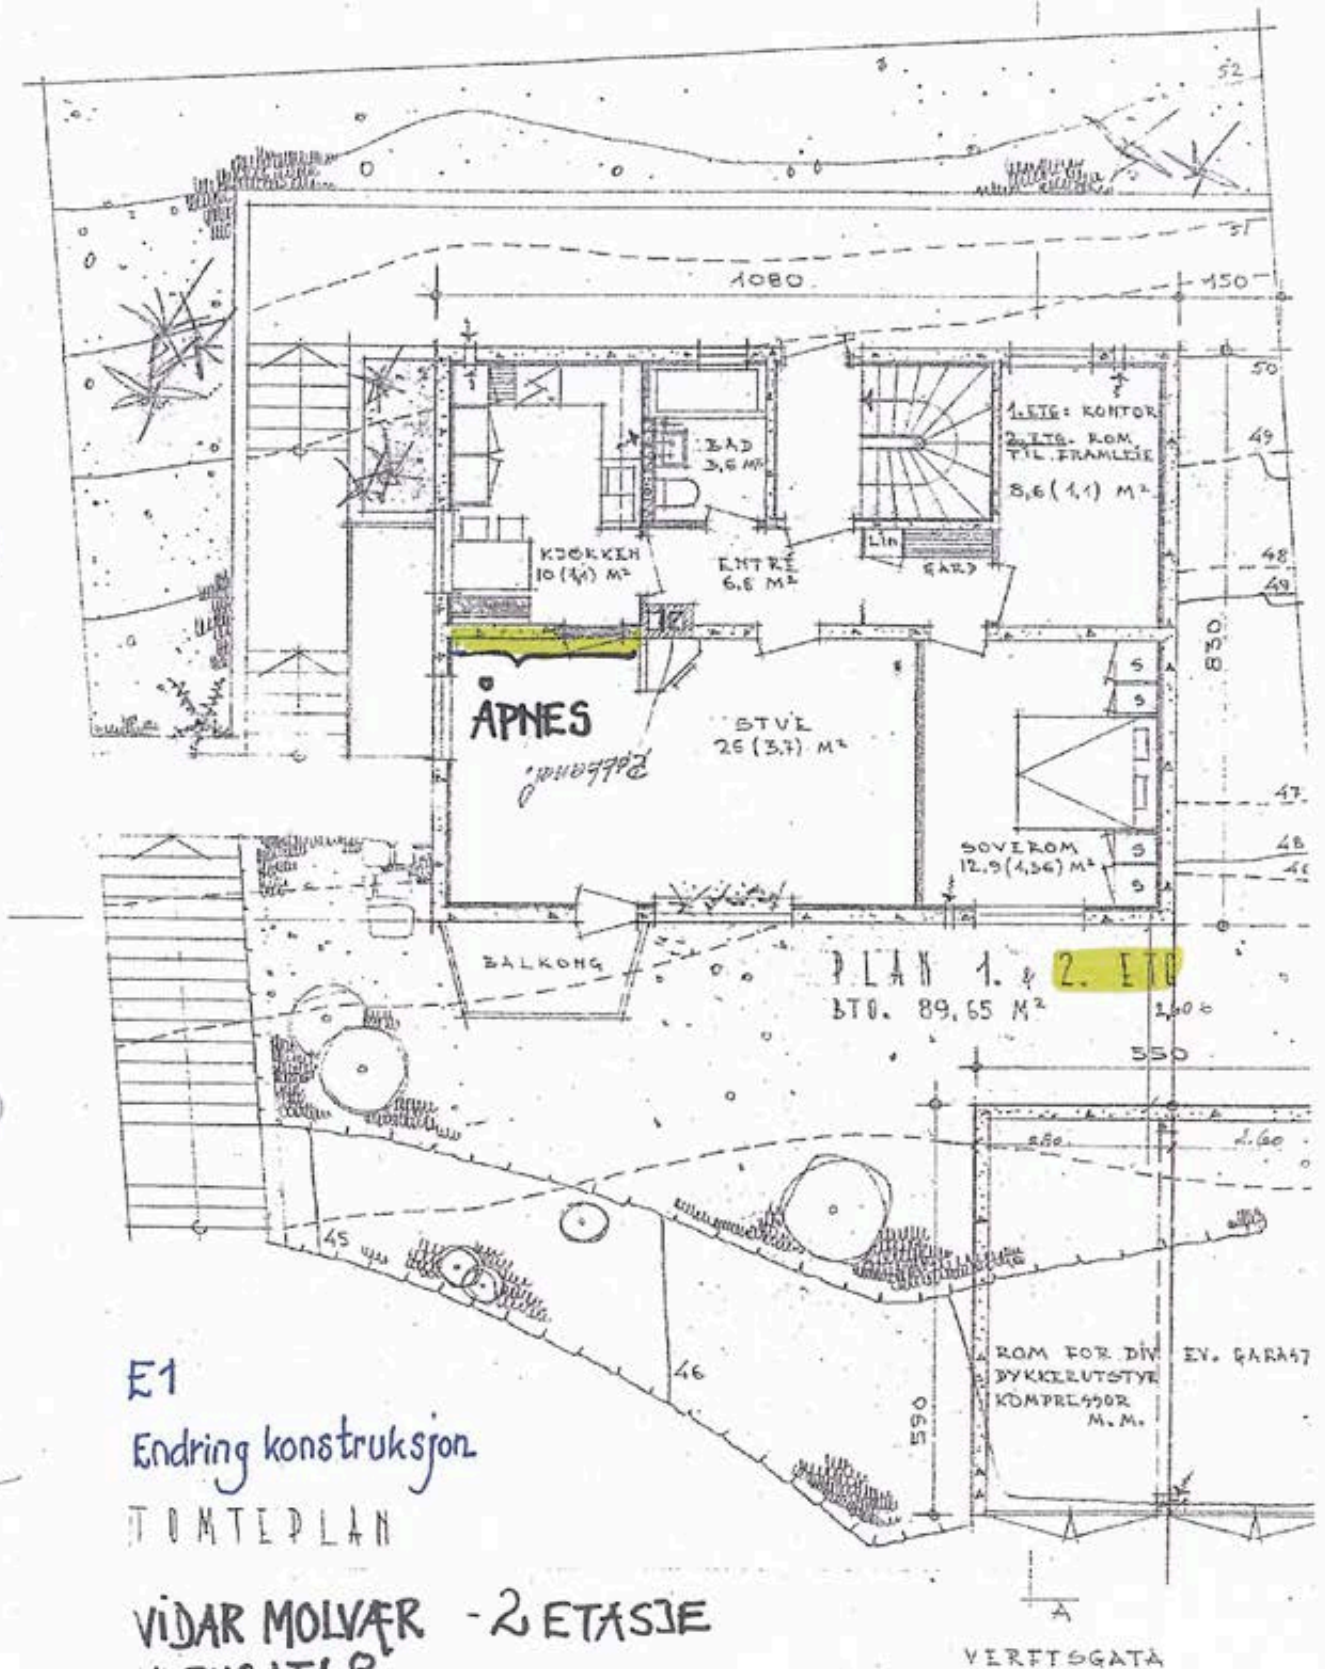 52
51
1080
150
50
49
1. ETG: KONTOR
2. ETG. ROM
TIL FRAMLEIE
8,6 (1,1) M²
BAD
3,6 M²
KJØKKEN
10 (1,1) M²
ENTRÉ
6,8 M²
LIN
GARD
48
49
830
S
S
ÅPNES
STUE
25 (3,7) M²
47
SOVEROM
12,9 (1,36) M²
S
S
48
46
BALKONG
PLAN 1. & 2. ETG
BTO. 89,65 M²
550
280
2.60
45
46
590
ROM FOR DIV
DYKKERUTSTYR
KOMPRESSOR
M.M.
EV. GARASJ
E1
Endring konstruksjon
TOMTEPLAN
VIDAR MOLVÆR - 2 ETASJE
A
VERFTSGATA